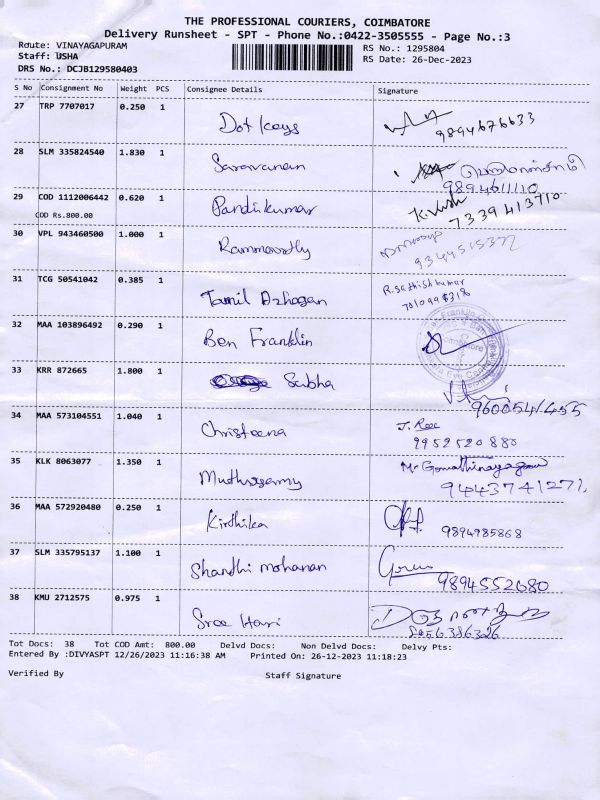 THE PROFESSIONAL COURIERS, COIMBATORE
Delivery Runsheet - SPT - Phone No.:0422-3505555 - Page No.:3
Route: VINAYAGAPURAM RS No.: 1295804
Staff: USHA RS Date: 26-Dec-2023
DRS No.: DCJB129580403
S No Consignment No Weight PCS Consignee Details Signature
27 TRP 7707017 0.250 1
Dot Keys 9894676633
28 SLM 335824540 1.830 1
Saravanan
9894611110
29 COD 1112006442 0.620 1
Pandikumar K. Vush
COD Rs.800.00 7339413710
30 VPL 943460500 1.000 1
Rammoorthy
31 TCG 50541042 0.385 1
R.sathish kumar
Tamil Azhagan
32 MAA 103896492 0.290 1
Ben Franklin
33 KRR 872665 1.800 1
Subha
9600541455
34 MAA 573104551 1.040 1
Christeena
9952520880
35 KLK 8063077 1.350 1
Mr Gomathinayagam
Muthusamy 9443741271
36 MAA 572920480 0.250 1
Kirthika 9894985868
37 SLM 335795137 1.100 1
Shandhi mohanan
9894552680
38 KMU 2712575 0.975 1
Sree Hari
8056386326
Tot Docs: 38 Tot COD Amt: 800.00 Delvd Docs: Non Delvd Docs: Delvy Pts:
Entered By :DIVYASPT 12/26/2023 11:16:38 AM Printed On: 26-12-2023 11:18:23
Verified By Staff Signature